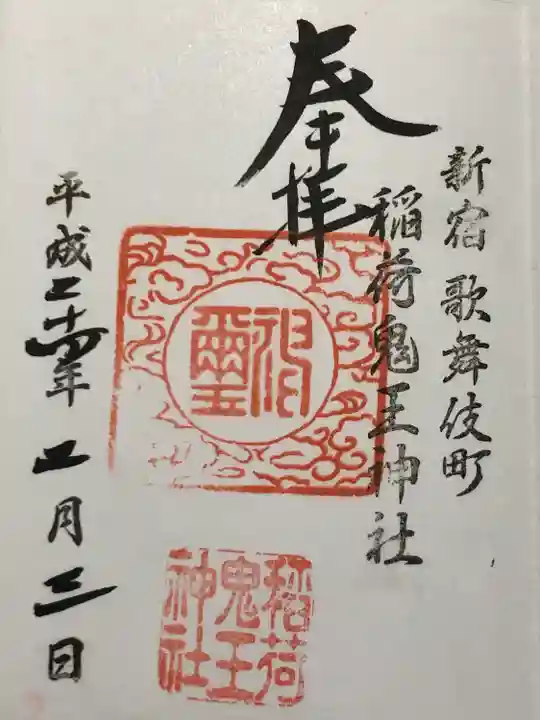 新宿 歌舞伎町
稲荷鬼王神社
奉拝
神璽
稲荷
鬼王
神社
平成二十四年 二月三日